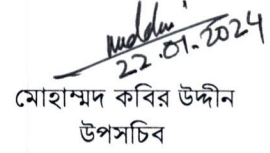 22.01.2024
মোহাম্মদ কবির উদ্দীন
উপসচিব